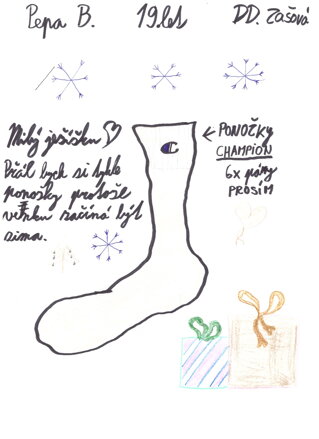 Pepa B. 19.let DD. Zašová
Milý ježíšku
Přál bych si tyhle
ponožky protože
venku začíná být
zima.
C
← PONOŽKY
CHAMPION
6x páry
PROSÍM